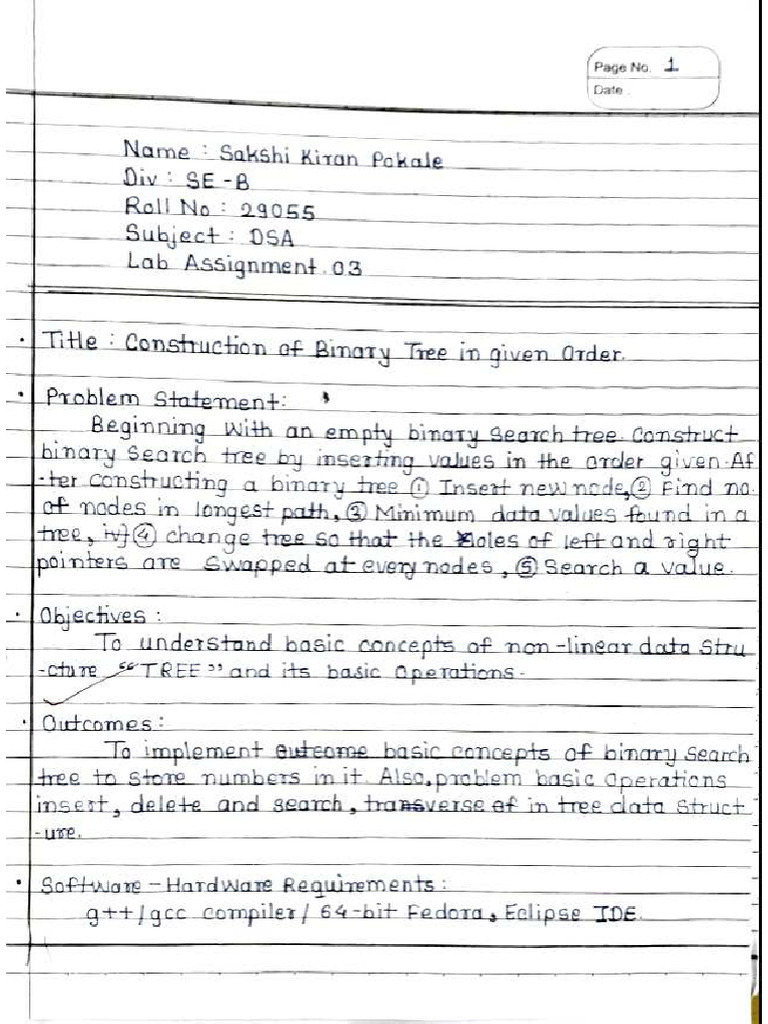 Page No. 1
Date.
Name : Sakshi Kiran Pokale
Div : SE-B
Roll No : 29055
Subject : DSA
Lab Assignment 03
• Title : Construction of Binary Tree in given Order.
• Problem Statement:
Beginning With an empty binary Search tree. Construct
binary Search tree by inserting values in the order given. Af
-ter constructing a binary tree ① Insert new node, ② Find no.
of nodes in longest path, ③ Minimum data values found in a
tree, iv) ④ change tree so that the Roles of left and right
pointers are Swapped at every nodes, ⑤ Search a value.
• Objectives :
To understand basic concepts of non-linear data Stru
-cture "TREE" and its basic Operations.
• Outcomes :
To implement outcome basic concepts of binary Search
tree to store numbers in it. Also, problem basic Operations
insert, delete and search, transverse of in tree data Struct
-ure.
• Software - Hardware Requirements :
g++/gcc compiler / 64-bit Fedora, Eclipse IDE.